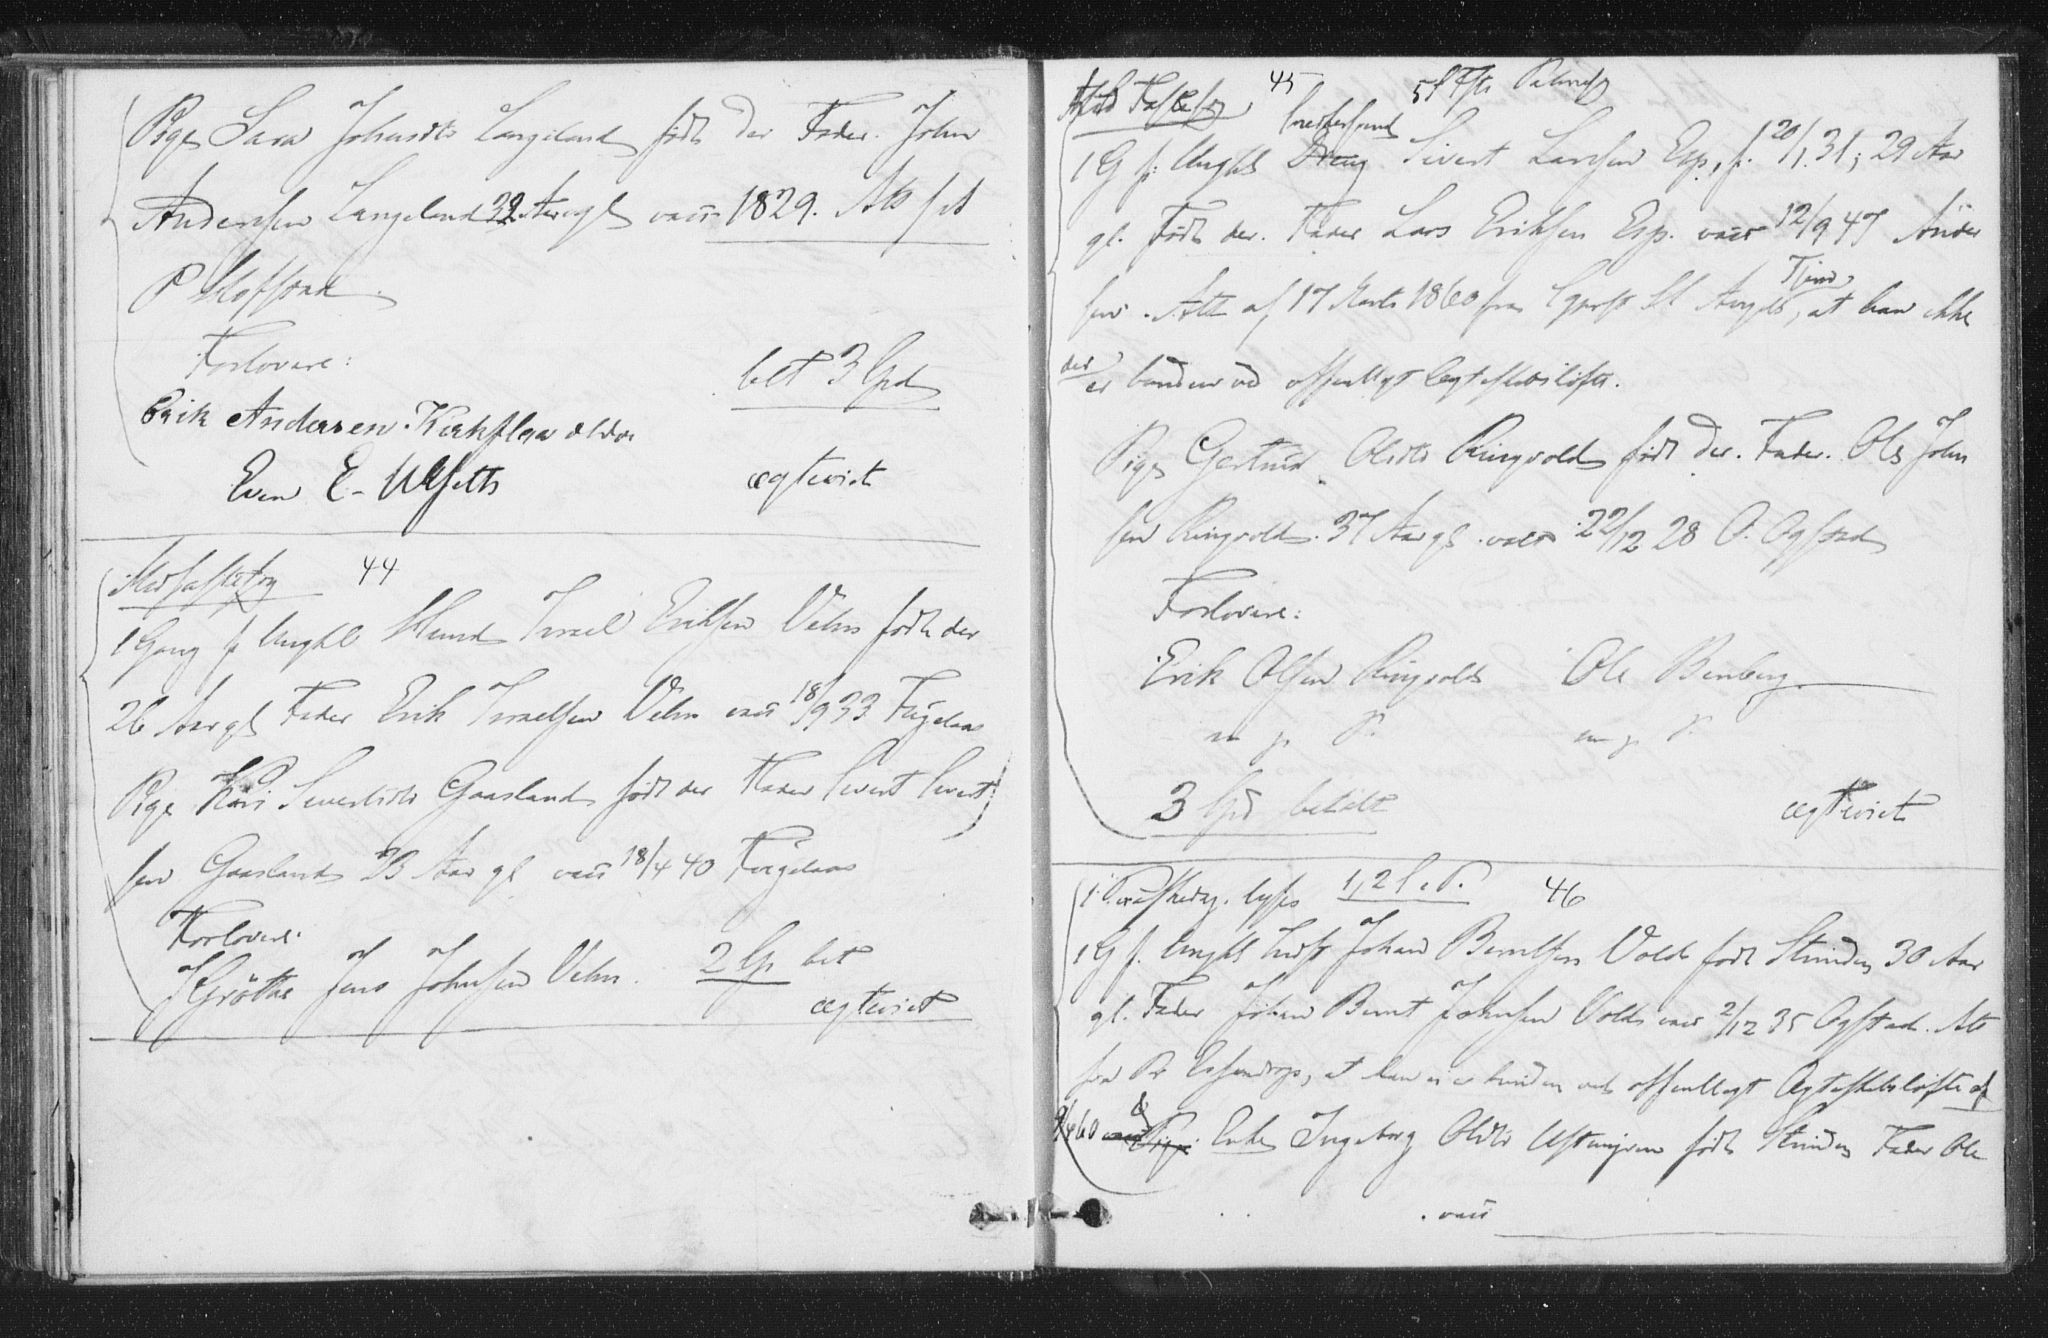 Pige Sara Johnsdtr Langeland født der Fader. John
Andersen Langeland 32 Aar gl vacc 1829. Att fra
P
Forlovere:
bet 3 Spd
Erik Andersen
Even E. Ulseth
ægteviet
44
1 Gang f Ungkl Israel Eriksen Vehn født der
26 Aar gl Fader Erik Israelsen Vehn vacc 18/9 33 Fugelaas
Pige Kari Sivertsdtr Gaasland født der Fader Sivert Sivert
sen Gaasland 23 Aar gl vacc 18/4 40 Fugelaas
Forlovere:
Jens Johnsen Vehn. 2 Sp bet
ægteviet
45
1 G f. Ungkl Sivert Larsen Esp, f. 20/1 31, 29 Aar
gl. Født der. Fader Lars Eriksen Esp. vacc 12/9 47 Ander
sen. Att af 17 Marts 1860 fra, at han ikke
der er bunden ved offentligt Ægteskabsløfte.
Pige Gertrud Olsdtr Ringvold født der. Fader. Ole John
sen Ringvold. 37 Aar gl. vacc 22/12 28 O. Ogstad
Forlovere:
Erik Olsen Ringvold Ole Benberg
m p P. m p P.
3 Spd betalt
ægteviet
lyses 1, 2 S. e. P. 46
1 G f. Ungkl Johan Berntsen Vold født Strinden 30 Aar
gl. Fader Johan Bernt Johnsen Vold vacc 2/12 35 Ogstad. Att
fra Pr Essendrop, at han ei er bunden ved offentligt Ægteskabsløfte af
9/4 60 Pige Enke Ingeborg Olsdtr født Strinden Fader Ole
vacc